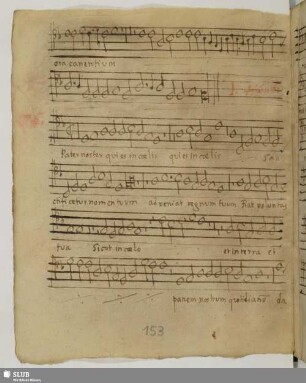 Pater noster qui es in celis qui es in celis San
cificetur nomen tuum adveniat regnum tuum Fiat voluntas
tua Sicut in celo et in terra et
panem nostrum quotidianū da
153
SLUB